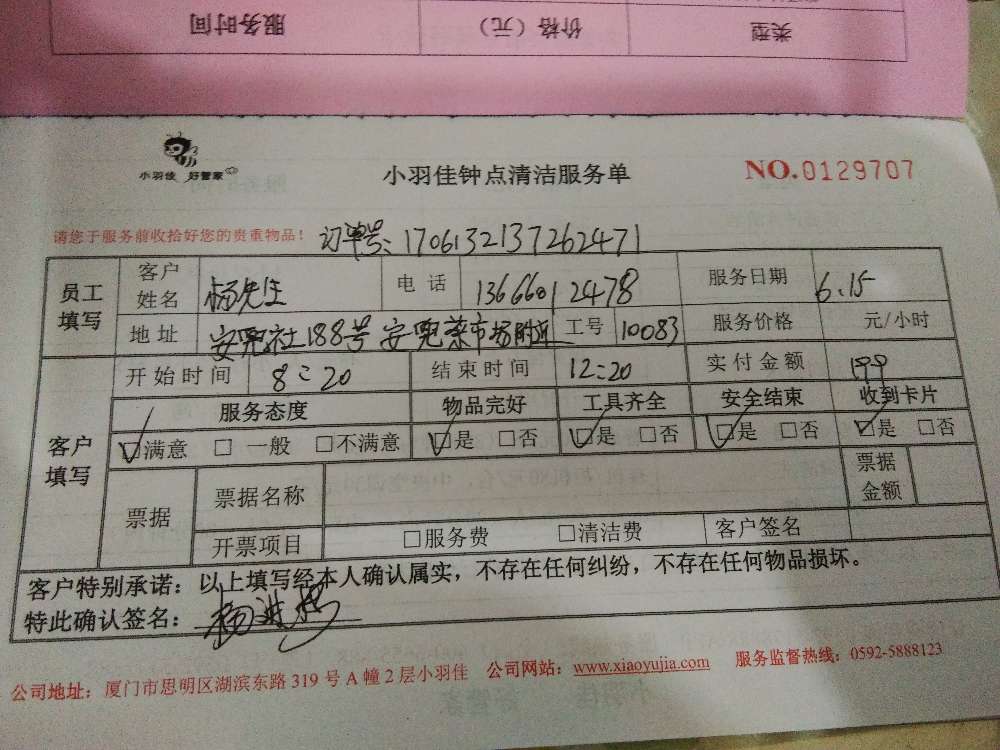 类型 价格（元） 服务时间
小羽佳 好管家
小羽佳钟点清洁服务单
NO.0129707
请您于服务前收拾好您的贵重物品！ 订单号：1706132137262471
员工填写 客户姓名 杨先生 电话 13666012478 服务日期 6.15
地址 安兜社188号安兜菜市场附近 工号 10083 服务价格 元/小时
客户填写 开始时间 8:20 结束时间 12:20 实付金额
服务态度 物品完好 工具齐全 安全结束 收到卡片
☑满意 □一般 □不满意 ☑是 □否 ☑是 □否 ☑是 □否 ☑是 □否
票据 票据名称 票据金额
开票项目 □服务费 □清洁费 客户签名
客户特别承诺：以上填写经本人确认属实，不存在任何纠纷，不存在任何物品损坏。
特此确认签名：杨
公司地址：厦门市思明区湖滨东路319号A幢2层小羽佳 公司网站：www.xiaoyujia.com 服务监督热线：0592-5888123